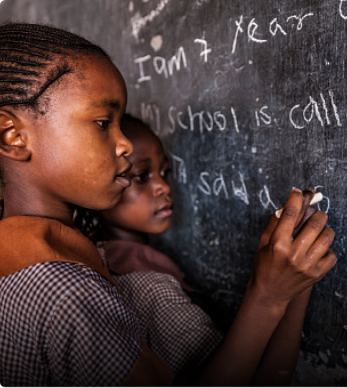 I am 7 year
My school is call
said